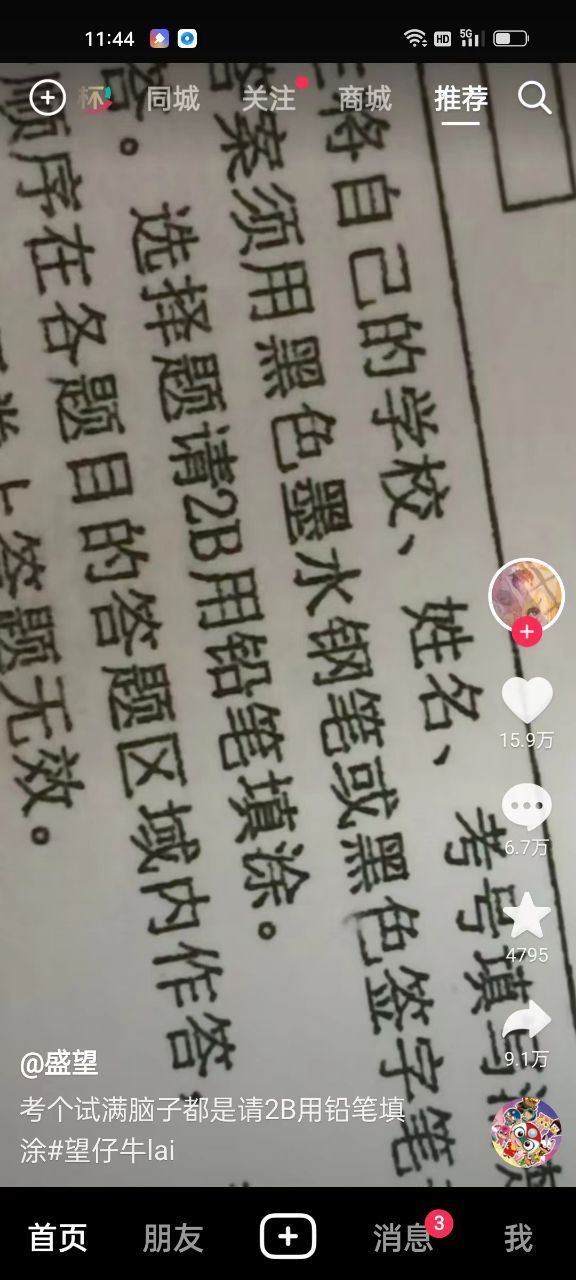 11:44
HD
5G
同城
关注
商城
推荐
将自己的学校、姓名、考号填写
答案须用黑色墨水钢笔或黑色签字笔
答。选择题请2B用铅笔填涂。
顺序在各题目的答题区域内作答,
上答题无效。
15.9万
6.7万
4795
9.1万
@盛望
考个试满脑子都是请2B用铅笔填
涂#望仔牛lai
首页
朋友
消息
3
我